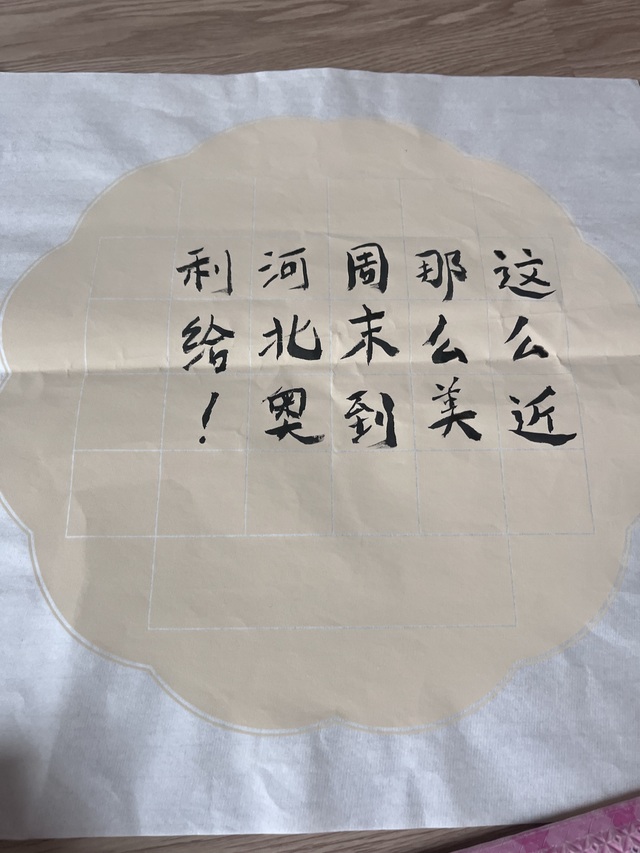 这么近
那么美
周末到
河北奥
利给！